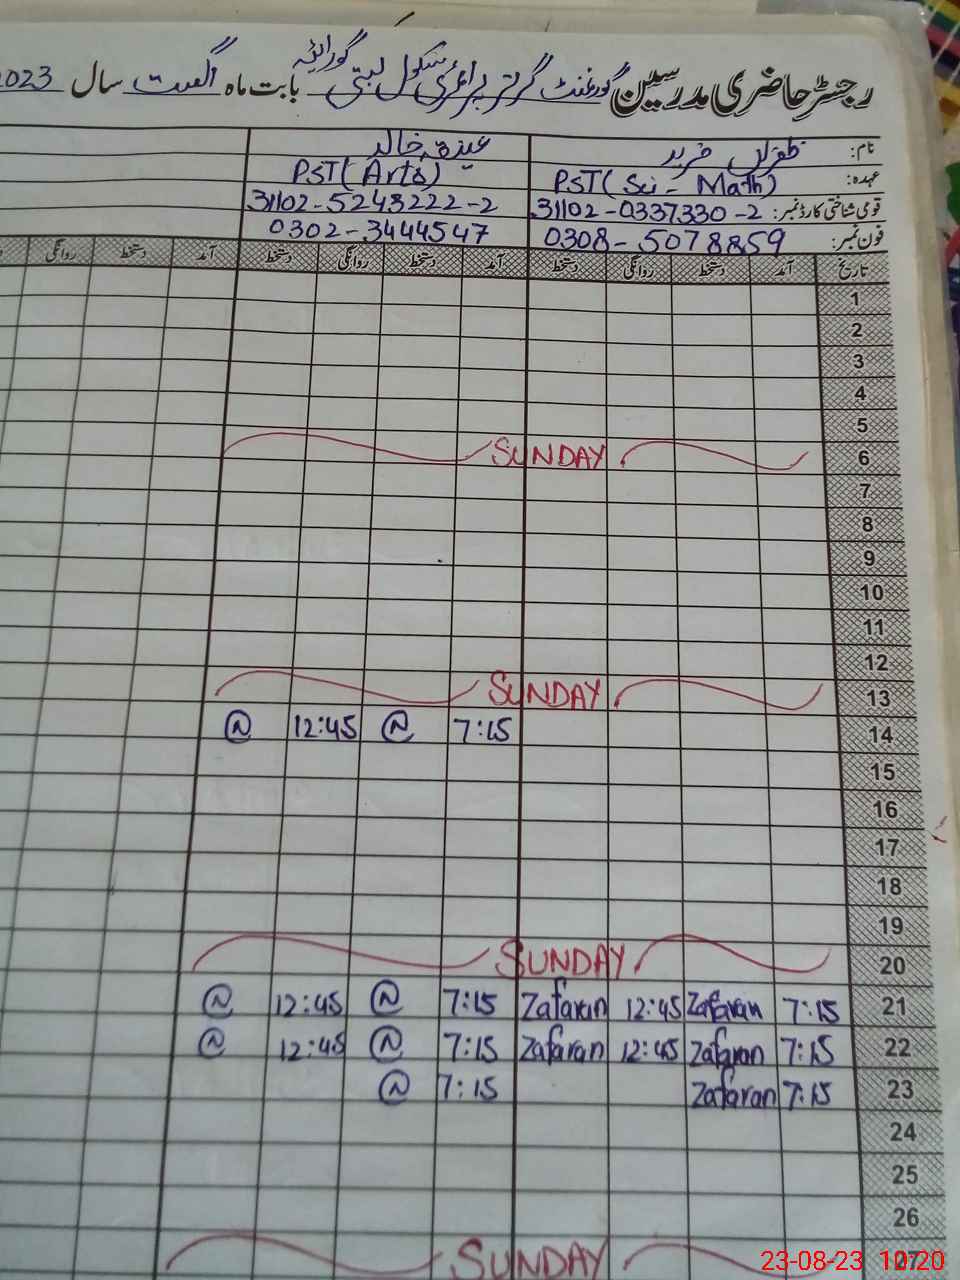 رجسٹر حاضری مدرسین گورنمنٹ گرلز پرائمری سکول بستی گورائیہ بابت ماہ اگست سال 2023
نام: ظفراں فرید خالد
عہدہ: PST (Sci - Math) PST (Arts)
قومی شناختی کارڈ نمبر: 31102-0337330-2 31102-5243222-2
فون نمبر: 0308-5078859 0302-3444547
تاریخ آمد دستخط روانگی دستخط آمد دستخط روانگی دستخط آمد دستخط روانگی
1
2
3
4
5
6 SUNDAY
7
8
9
10
11
12
13 SUNDAY
14 7:15 12:45
15
16
17
18
19
20 SUNDAY
21 7:15 Zafaran 12:45 Zafaran 7:15 12:45
22 7:15 Zafaran 12:45 Zafaran 7:15 12:45
23 7:15 Zafaran 7:15
24
25
26
27 SUNDAY
23-08-23 10:20